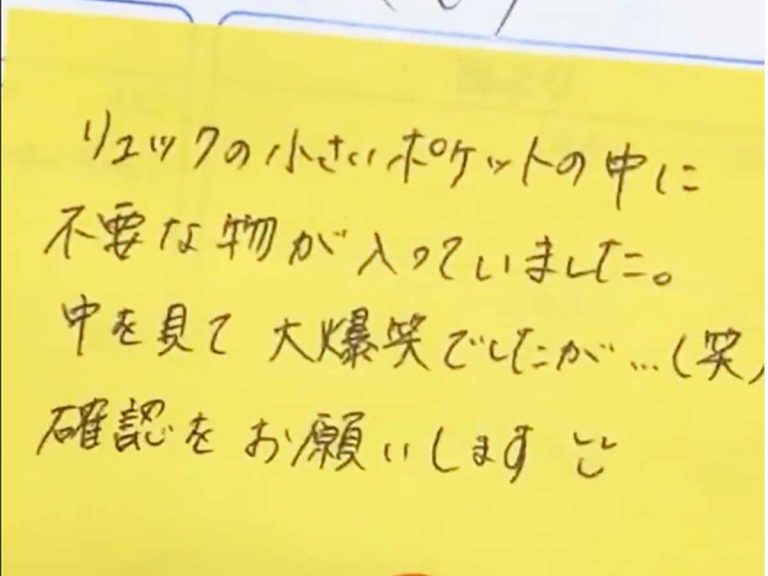 リュックの小さいポケットの中に
不要な物が入っていました。
中を見て大爆笑でしたが…(笑)
確認をお願いします